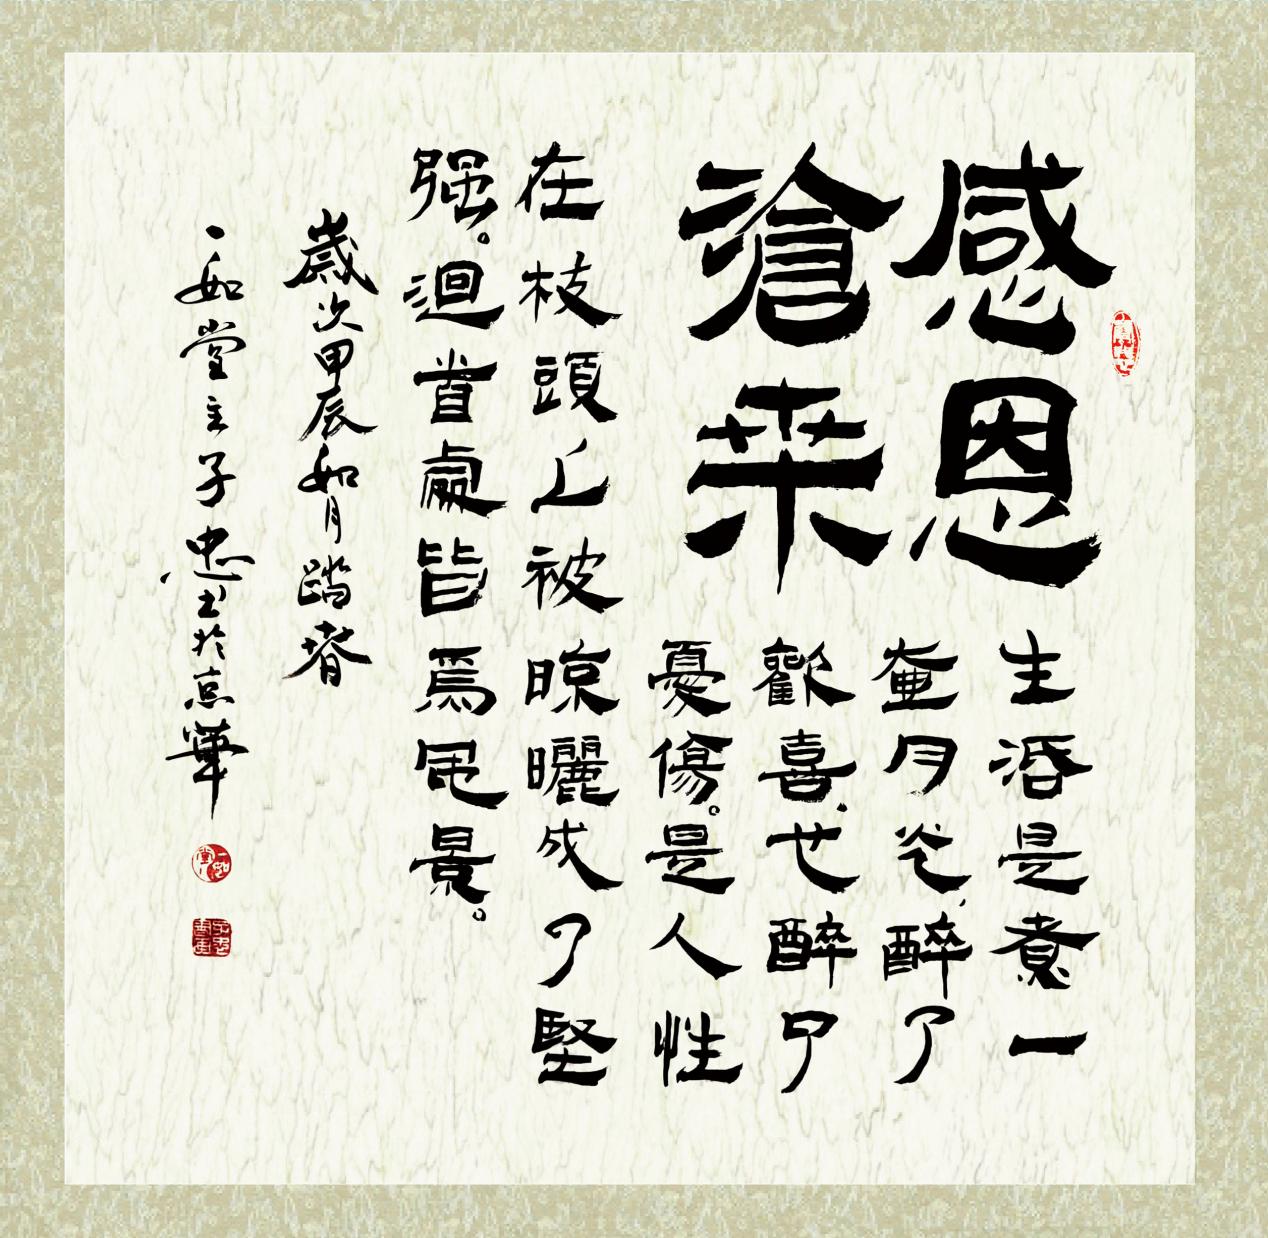 感恩
滄桒
生活是煮一
壺月光,醉了
歡喜,也醉了
憂傷。是人性
在枝頭上被晾曬成了堅
强。迴首處皆爲風景。
歲次甲辰如月踏春
一如堂主子忠书於京華
一如堂